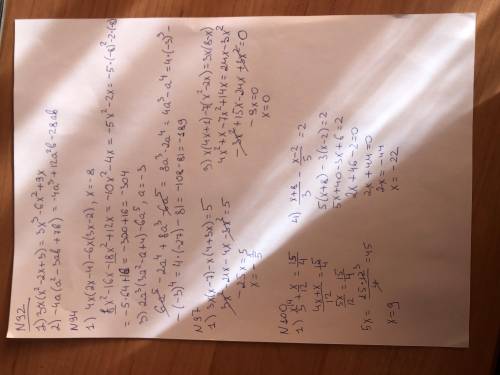 N92
1) 3x(x²-2x+3) = 3x³-6x²+9x
2) -4a(a²-3ab+7b) = -4a³+12a²b-28ab
N94
1) 4x(2x-4)-6x(3x-2), x=-8
8x²-16x-18x²+12x = -10x²-4x = -5x²-2x = -5·(-8)²-2·(-8)
= -5·64+16 = -320+16 = -304
3) 2a³(3a²-a+4)-6a⁵, a=-3
6a⁵-2a⁴+8a³-6a⁵ = 8a³-2a⁴ = 4a³-a⁴ = 4·(-3)³-
-(-3)⁴ = 4·(-27)-81 = -108-81 = -189
N97
1) 3x(x-7)-x(4+3x)=5
3x²-21x-4x-3x²=5
-25x=5
x=-1/5
3) x(4x+1)-7(x²-2x)=3x(8-x)
4x²+x-7x²+14x=24x-3x²
-3x²+15x-24x+3x²=0
-9x=0
x=0
N100
1) x/3+x/12=15/4
4x+x/12=15/4
5x/12=15/4
5x=15·12³/4=45
x=9
4) x+8/3-x-2/5=2
5(x+8)-3(x-2)=2
5x+40-3x+6=2
2x+46-2=0
2x+44=0
2x=-44
x=-22